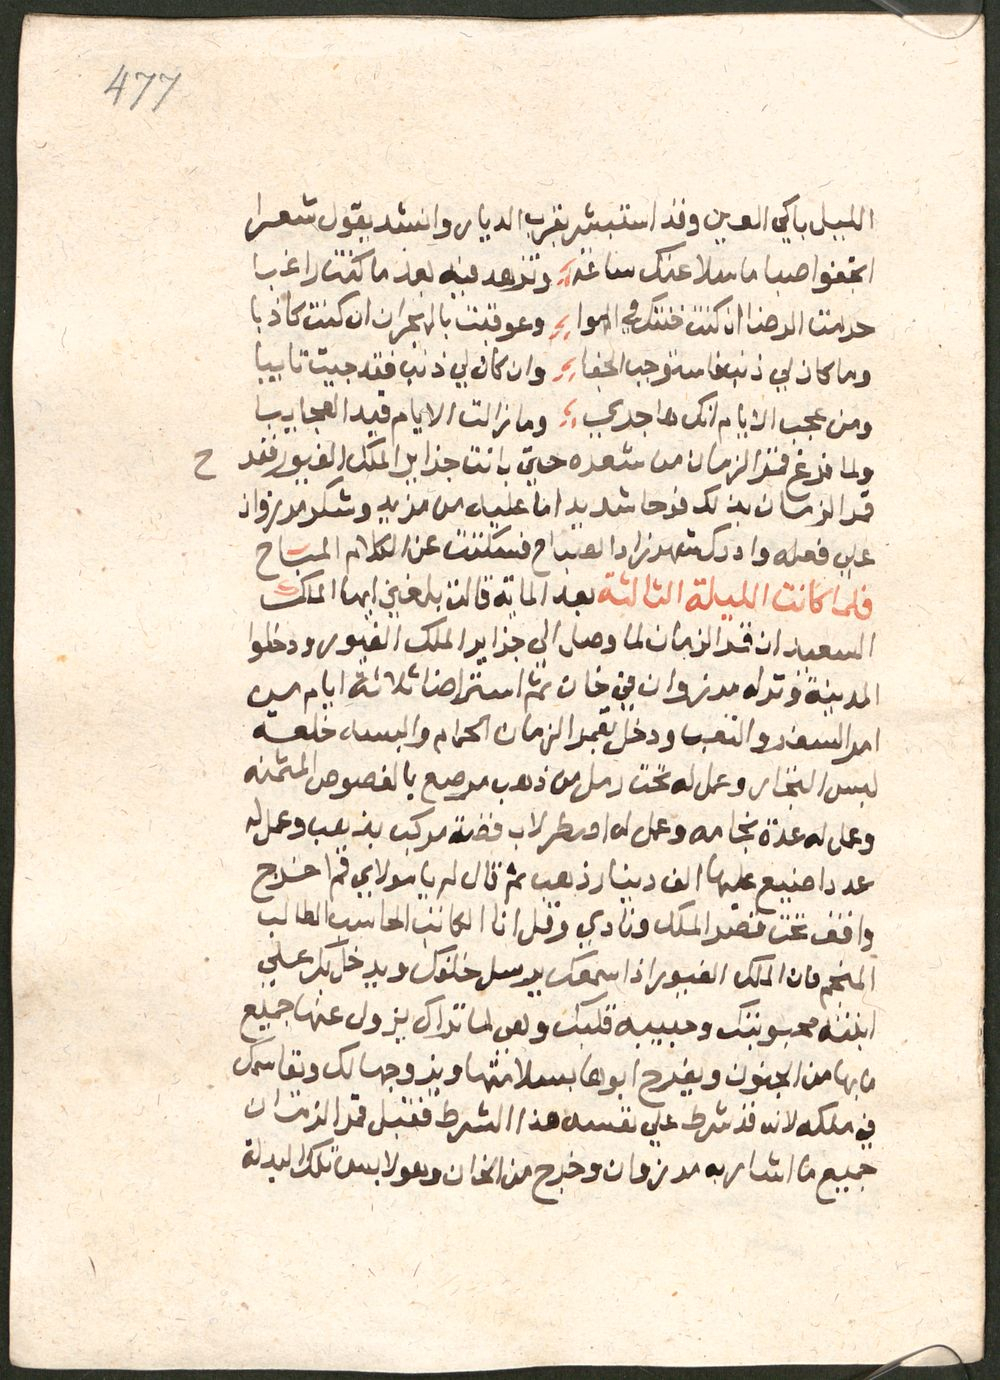 477
الليل باكي العين وقد استبشر بقرب الديار وانشد يقول شعرا
اتجفوا صبا ما سلا عنك ساعة وتزهد فيه بعد ما كنت راغبا
حرمت الرضا ان كنت خنتك في الهوا وعوقبت بالهجران ان كنت كاذبا
وما كان لي ذنب فاستوجب الجفا وان كان لي ذنب فقد جيت تايبا
ومن عجب الايام انك هاجري وما زالت الايام تبدي العجايبا
ولما فرغ قمر الزمان من شعره حتى بانت جزاير الملك الغيور ففرح
قمر الزمان بذلك فرحا شديدا ما عليه من مزيد وشكر مرزوان
على فعله وادرك شهرزاد الصباح فسكتت عن الكلام المباح
فلما كانت الليلة الثالثة بعد الماية قالت بلغني ايها الملك
السعيد ان قمر الزمان لما وصل الى جزاير الملك الغيور ودخلوا
المدينة فنزله مرزوان في خان ثم استراضا ثلاثة ايام من
امر السفر والتعب ودخل بقمر الزمان الحمام والبسه خلعة
لبس التجار وعمل له تخت رمل من ذهب مرصع بالفصوص المثمنه
وعمل له عدة نجامه وعمل له اصطرلاب فضة مركب بذهب وعمل له
عددا ضيع عليها الف دينار ذهب ثم قال له يا مولاي قم اخرج
واقف تحت قصر الملك ونادي وقل انا الكاتب الحاسب الطالب
المنجم فان الملك الغيور اذا سمعك يرسل خلفك ويدخل بك على
ابنته محبوبتك وحبيبه قلبك وهي لما تراك يزول عنها جميع
ما بها من الجنون ويفرح ابوها بسلامتها ويزوجها لك وتقاسمك
في ملكه لانه قد شرط على نفسه هذا الشرط فقبل قمر الزمان
جميع ما اشار به مرزوان وخرج من الخان وهو لابس تلك البدلة